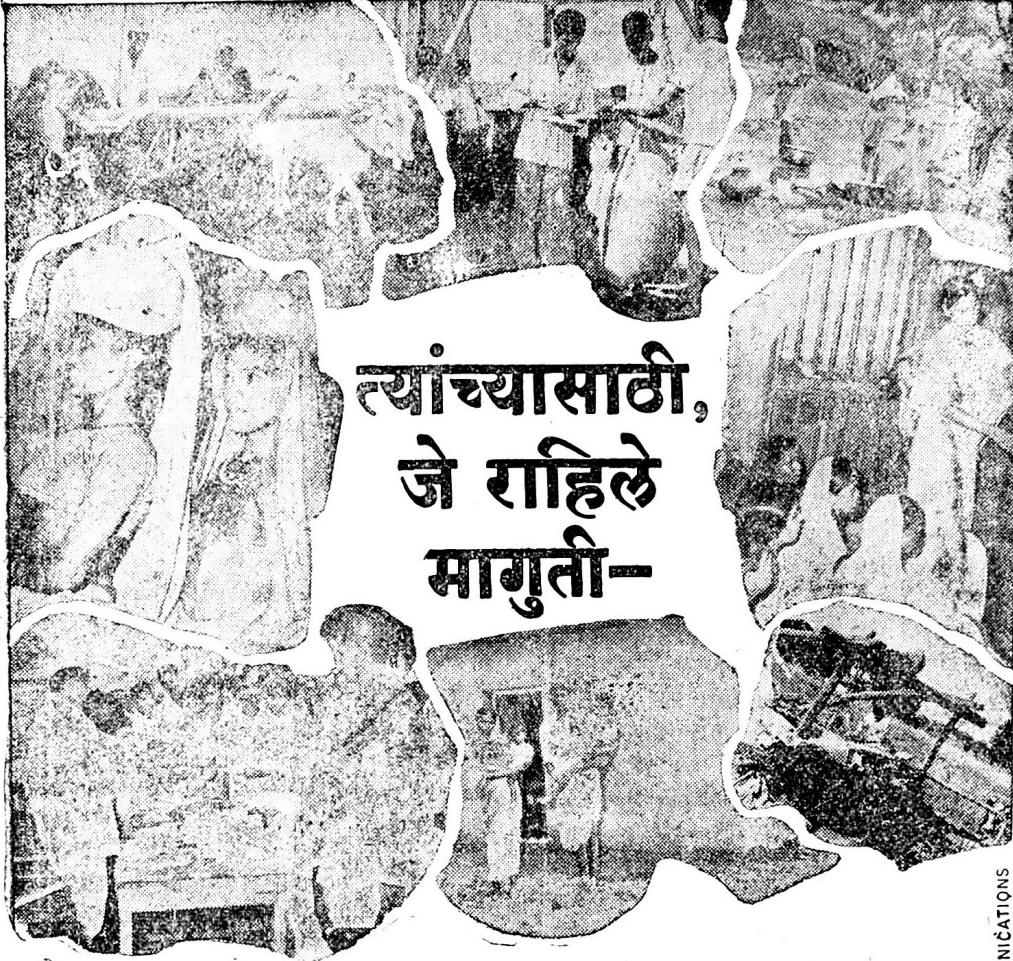 त्यांच्यासाठी,
जे राहिले
मागुती–
NICATIONS